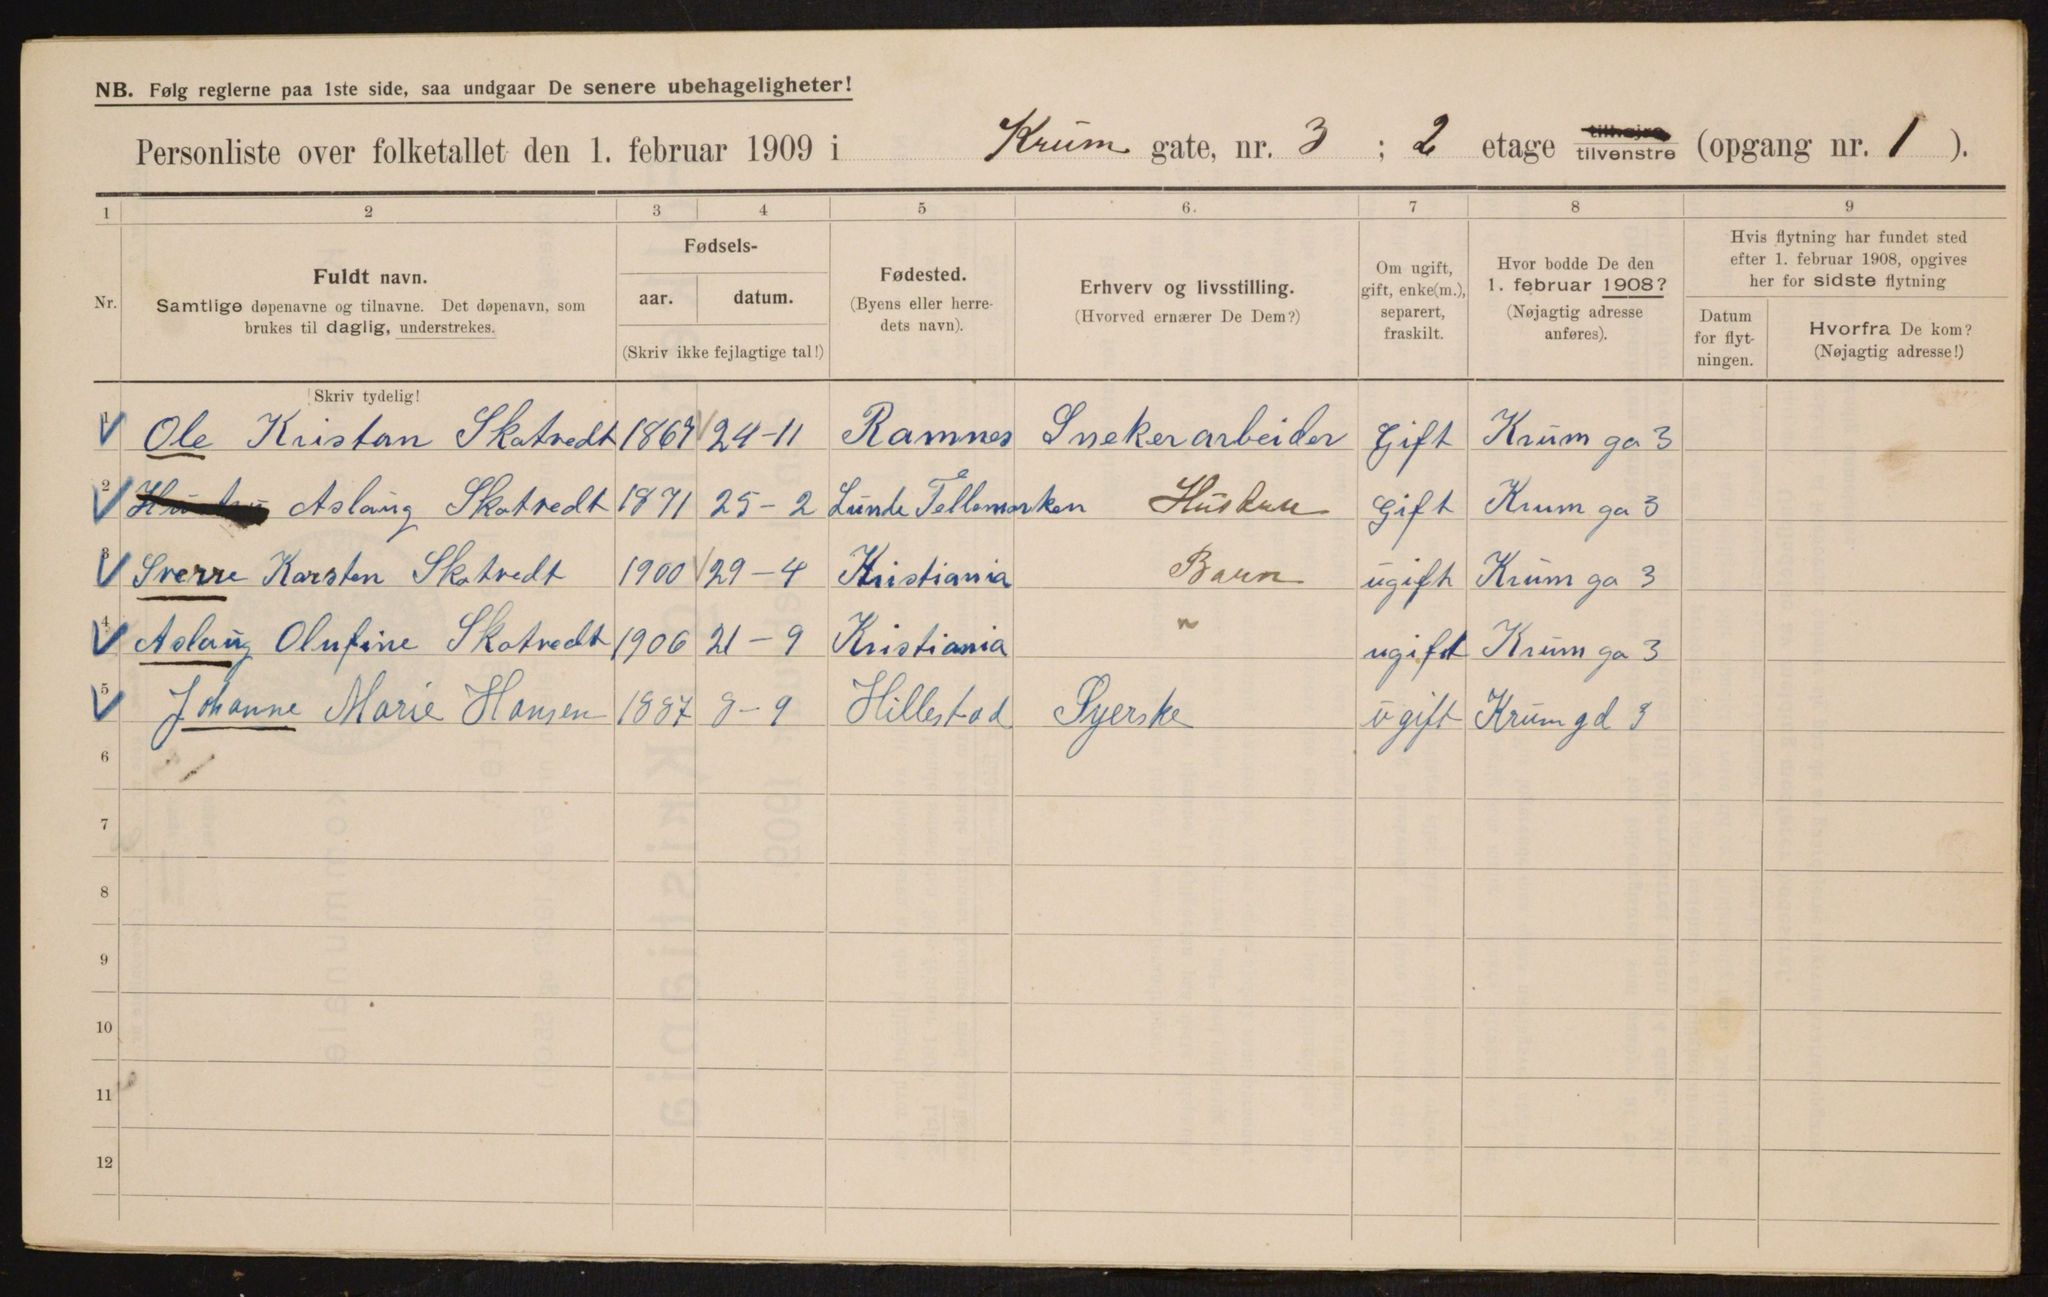 NB. Følg reglerne paa 1ste side, saa undgaar De senere ubehageligheter!
Personliste over folketallet den 1. februar 1909 i Krum gate, nr. 3 ; 2 etage tilhøjre tilvenstre (opgang nr. 1 ).
1 2 3 4 5 6. 7 8 9
Nr.
Fuldt navn.
Samtlige døpenavne og tilnavne. Det døpenavn, som
brukes til daglig, understrekes.
Fødsels-
aar. datum.
(Skriv ikke fejlagtige tal!)
Fødested.
(Byens eller herre-
dets navn).
Erhverv og livsstilling.
(Hvorved ernærer De Dem?)
Om ugift,
gift, enke(m.),
separert,
fraskilt.
Hvor bodde De den
1. februar 1908?
(Nøjagtig adresse
anføres).
Hvis flytning har fundet sted
efter 1. februar 1908, opgives
her for sidste flytning
Datum
for flyt-
ningen.
Hvorfra De kom?
(Nøjagtig adresse!)
Skriv tydelig!
1 Ole Kristan Skatvedt 1867 24-11 Ramnes Snekerarbeider Gift Krum ga 3
2 Hustru Aslaug Skatvedt 1871 25-2 Lunde Tellemarken Hustru Gift Krum ga 3
3 Sverre Karsten Skatvedt 1900 29-4 Kristiania Barn ugift Krum ga 3
4 Aslaug Olufine Skatvedt 1906 21-9 Kristiania " ugift Krum ga 3
5 Johanne Marie Hansen 1887 8-9 Hillestad Syerske ugift Krum gd 3
6
7
8
9
10
11
12